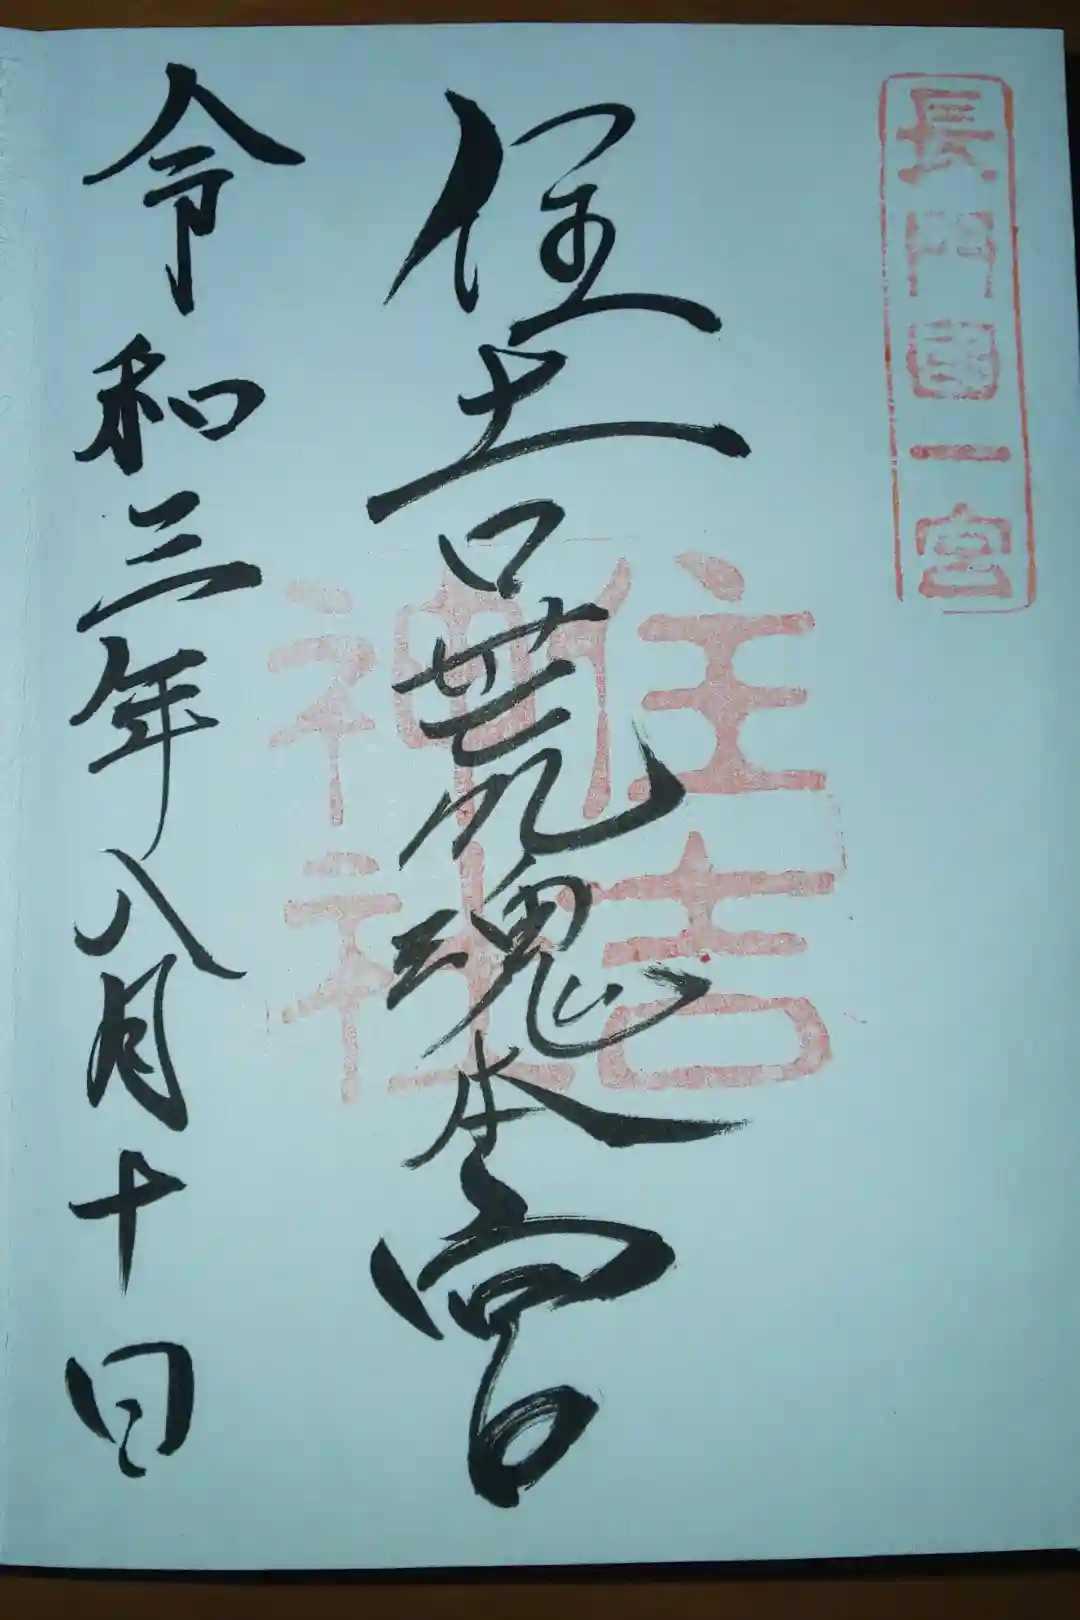 長門國一宮
住吉荒魂本宮
住吉
神社
令和三年八月十日